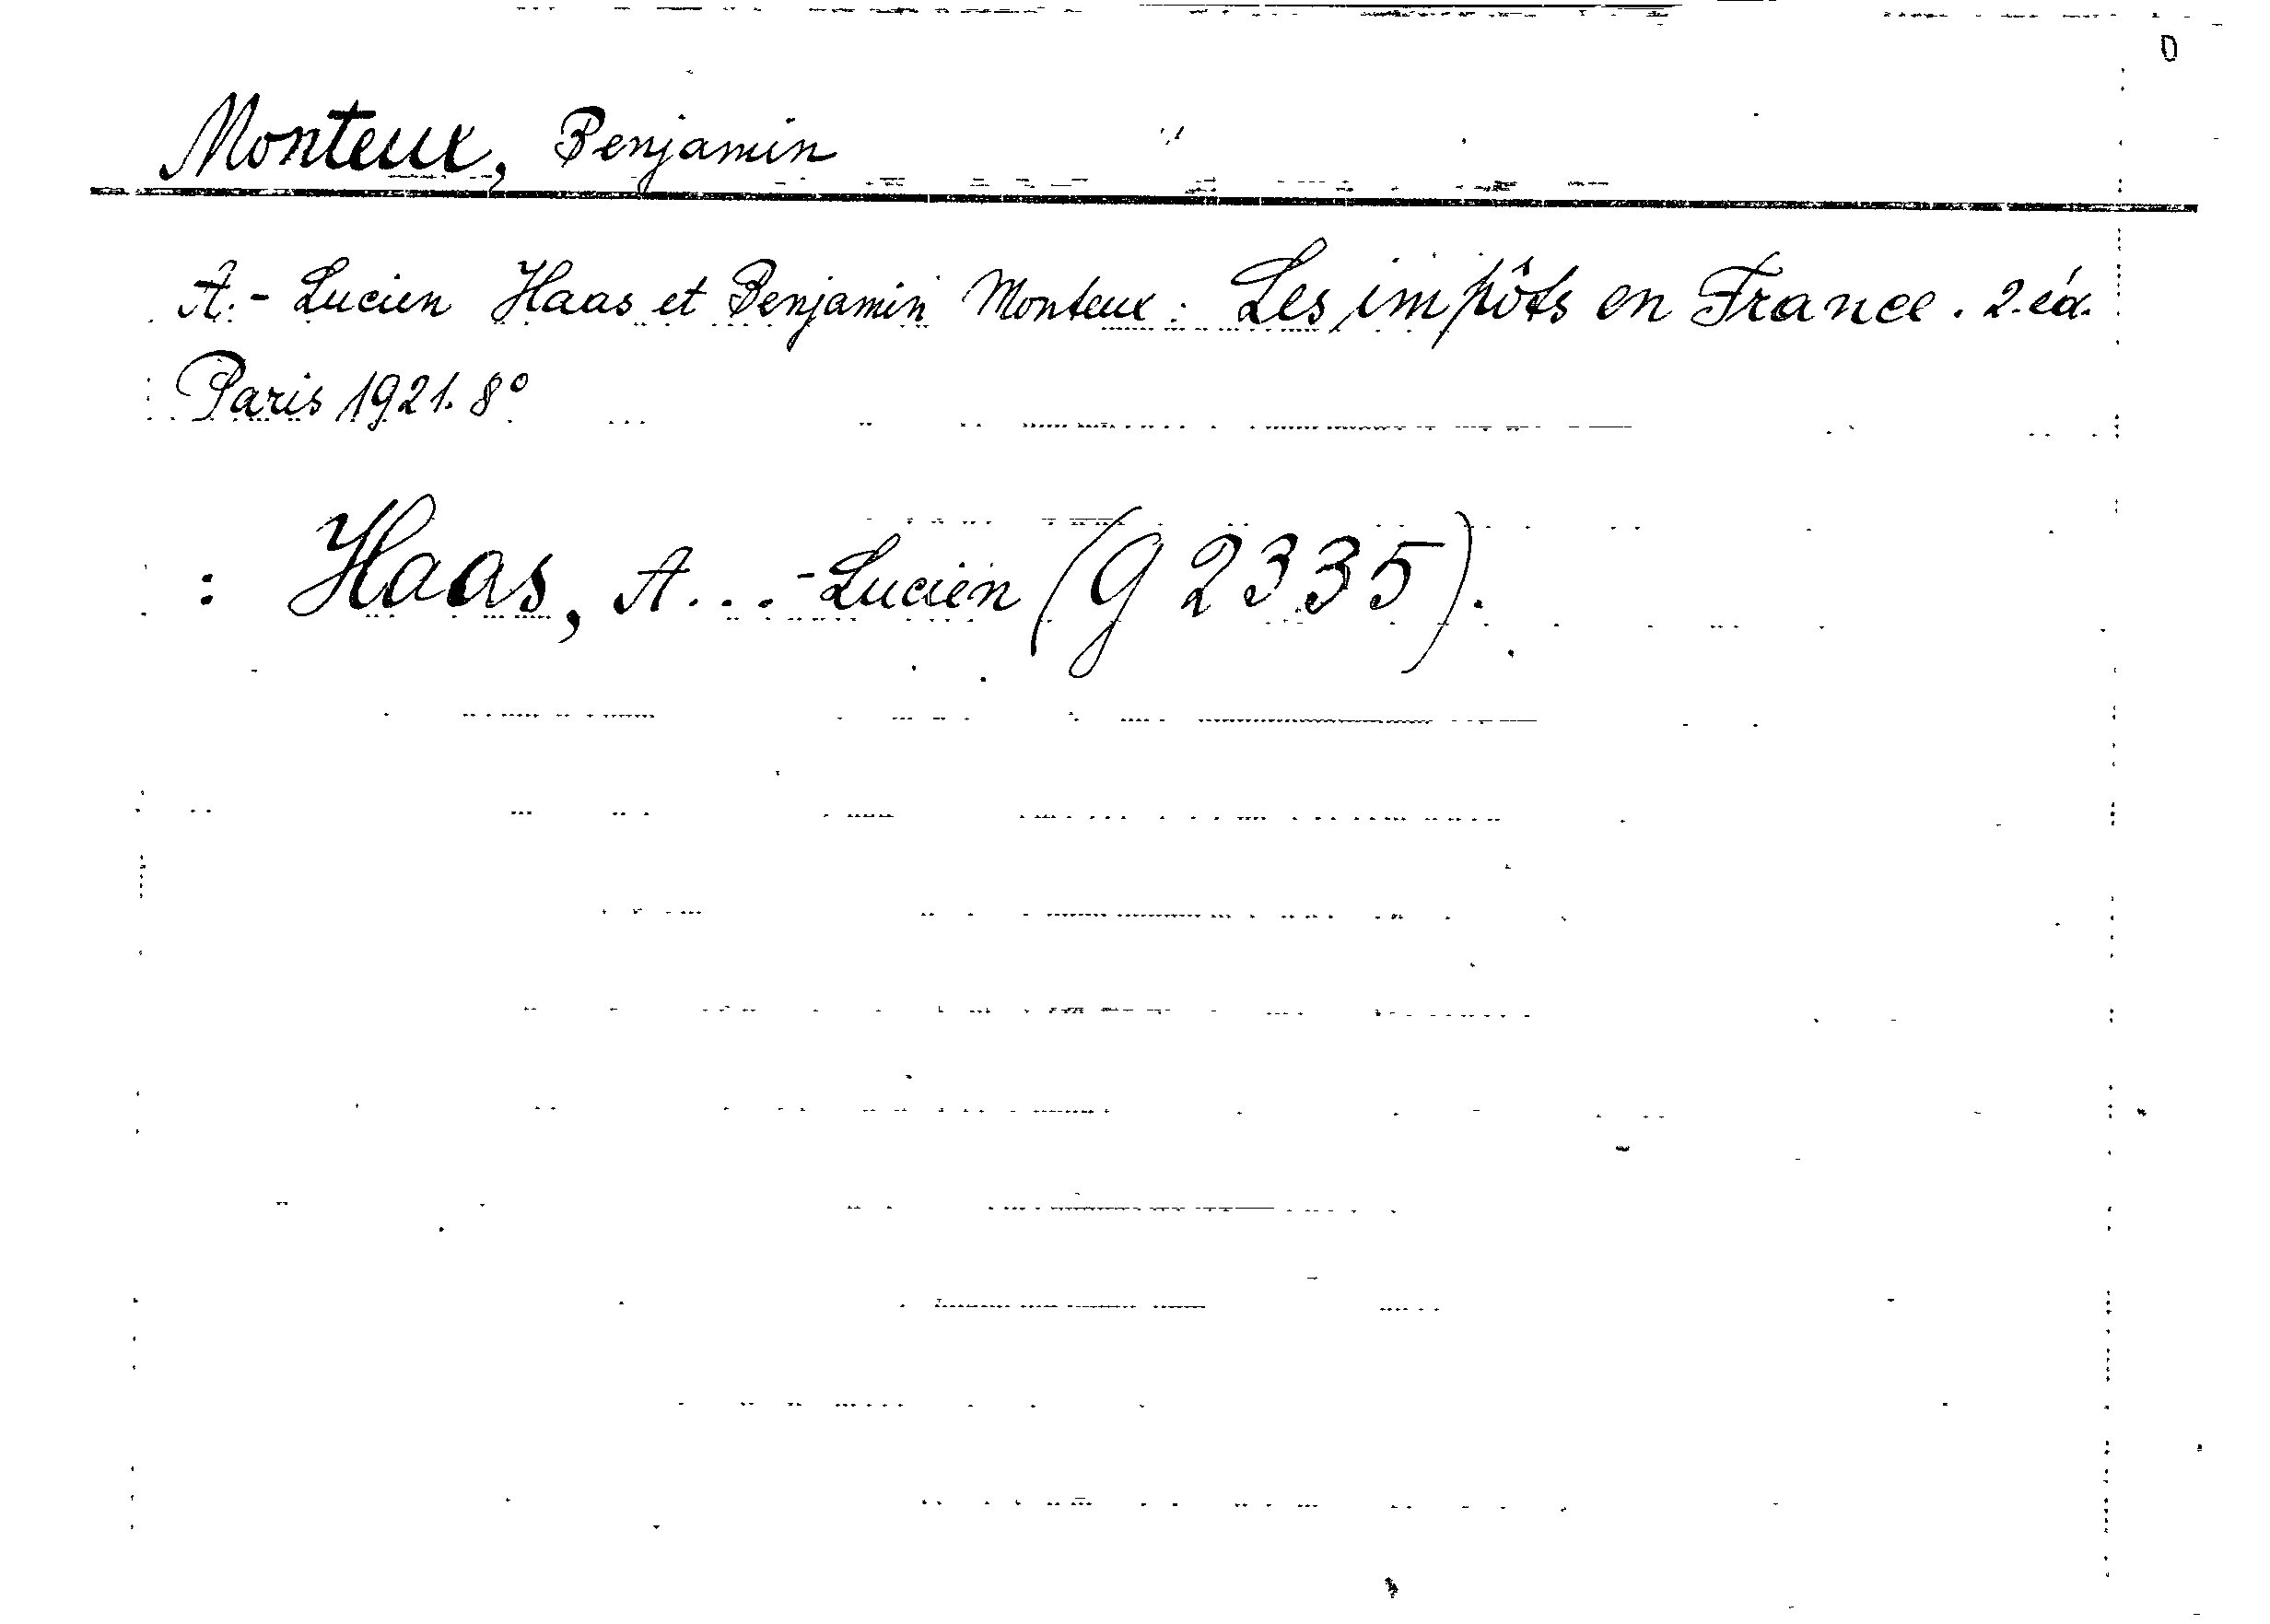 Monteux, Benjamin
A.- Lucien Haas et Benjamin Monteux: Les impôts en France. 2.éd.
Paris 1921. 8°
: Haas, A...-Lucien (g 2335).